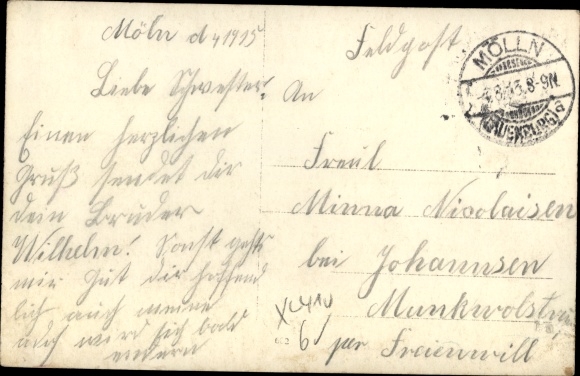 Möln d 4 1915
Liebe Schwester!
Einen herzlichen
Gruß sendet dir
dein Bruder
Wilhelm! Sonst gehts
mir Gut dir hoffend
lich auch meine
auch wird sich bald
ändern
Feldpost
MÖLLN
8-9N
LAUENBURG
An
Freul
Minna Nicolaisen
bei Johannsen
Munkwolstrup
per Freienwill